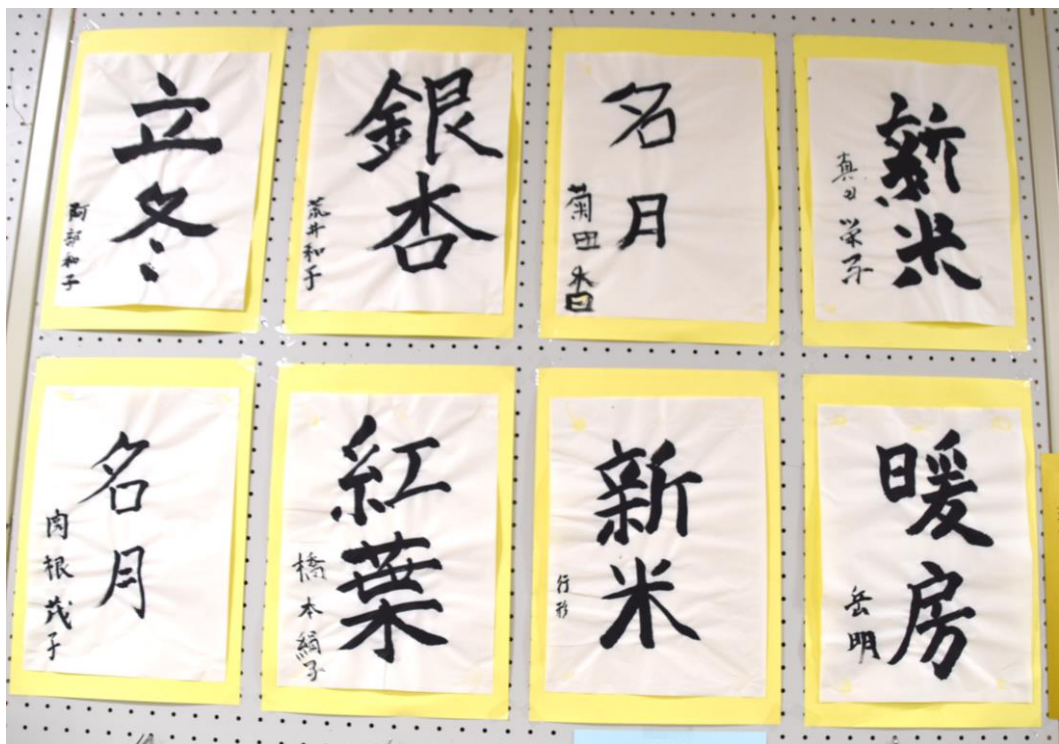 立冬
阿部和子
銀杏
荒井和子
名月
菊田
新米
栄子
名月
根茂子
紅葉
橋本絹子
新米
暖房
岳明